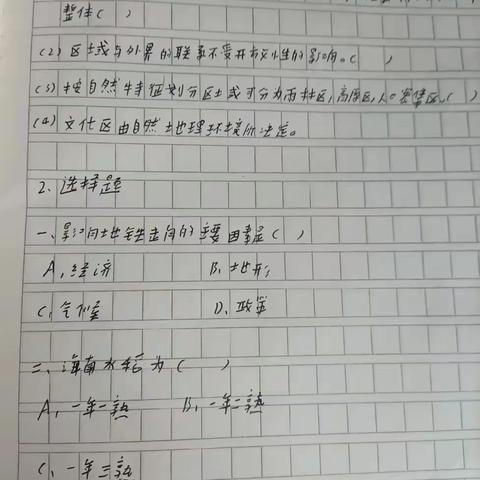 整体（ ）
(2) 区域与外界的联系不受开放性的影响。（ ）
(3) 按自然特征划分区域可分为雨林区,高原区,人口密集区。（ ）
(4) 文化区由自然地理环境所决定。
2. 选择题
一、影响地铁走向的主要因素是（ ）
A, 经济 B, 地形
C, 气候 D, 政策
二、海南水稻为（ ）
A, 一年一熟 B, 一年二熟
C, 一年三熟